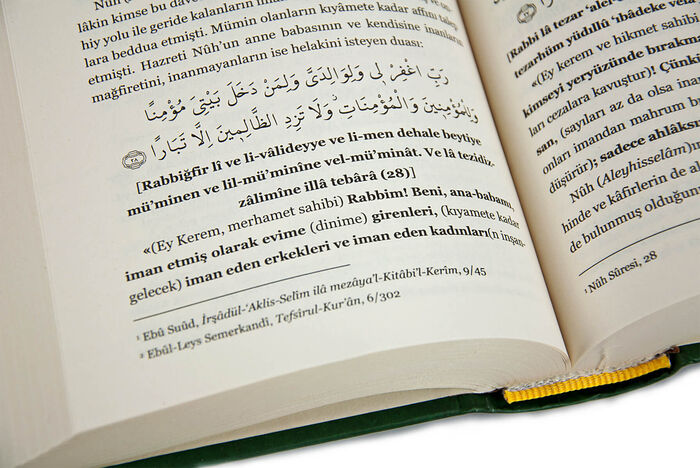 Nûh
lâkin kimse bu dav
hiy yolu ile geride kalanların îmân
lara beddua etmişti. Mümin olanların kıyâmete kadar affını talep
etmişti. Hazreti Nûh'un anne babasının ve kendisine inanların
mağfiretini, inanmayanların ise helakini isteyen duası:
رَبِّ اغْفِرْ لِى وَلِوَالِدَىَّ وَلِمَنْ دَخَلَ بَيْتِىَ مُؤْمِنًا
وَلِلْمُؤْمِنِينَ وَالْمُؤْمِنَاتِ وَلَا تَزِدِ الظَّالِمِينَ اِلَّا تَبَارًا ﴿٢٨﴾
[Rabbiğfir lî ve li-vâlideyye ve li-men dehale beytiye
mü'minen ve lil-mü'minîne vel-mü'minât. Ve lâ tezidiz-
zâlimîne illâ tebârâ (28)]
«(Ey Kerem, merhamet sahibi) Rabbim! Beni, ana-babamı,
iman etmiş olarak evime (dinime) girenleri, (kıyamete kadar
gelecek) iman eden erkekleri ve iman eden kadınları(n insan-
¹ Ebû Suûd, İrşâdül-'Aklis-Selîm ilâ mezâya'l-Kitâbi'l-Kerîm, 9/45
² Ebül-Leys Semerkandî, Tefsîrul-Kur'ân, 6/302
[Rabbi lâ tezar 'alel-
tezarhüm yüdıllû 'ıbâdeke vel
«(Ey kerem ve hikmet sahibi
kimseyi yeryüzünde bırakm
ları cezalara kavuştur)! Çünki
san, (sayıları az da olsa ima
onları imandan mahrum b
düşürür); sadece ahlâksı
Nûh (Aleyhisselâm)ın
hinde ve kâfirlerin de al
de bulunmuş olduğun
¹ Nûh Sûresi, 28